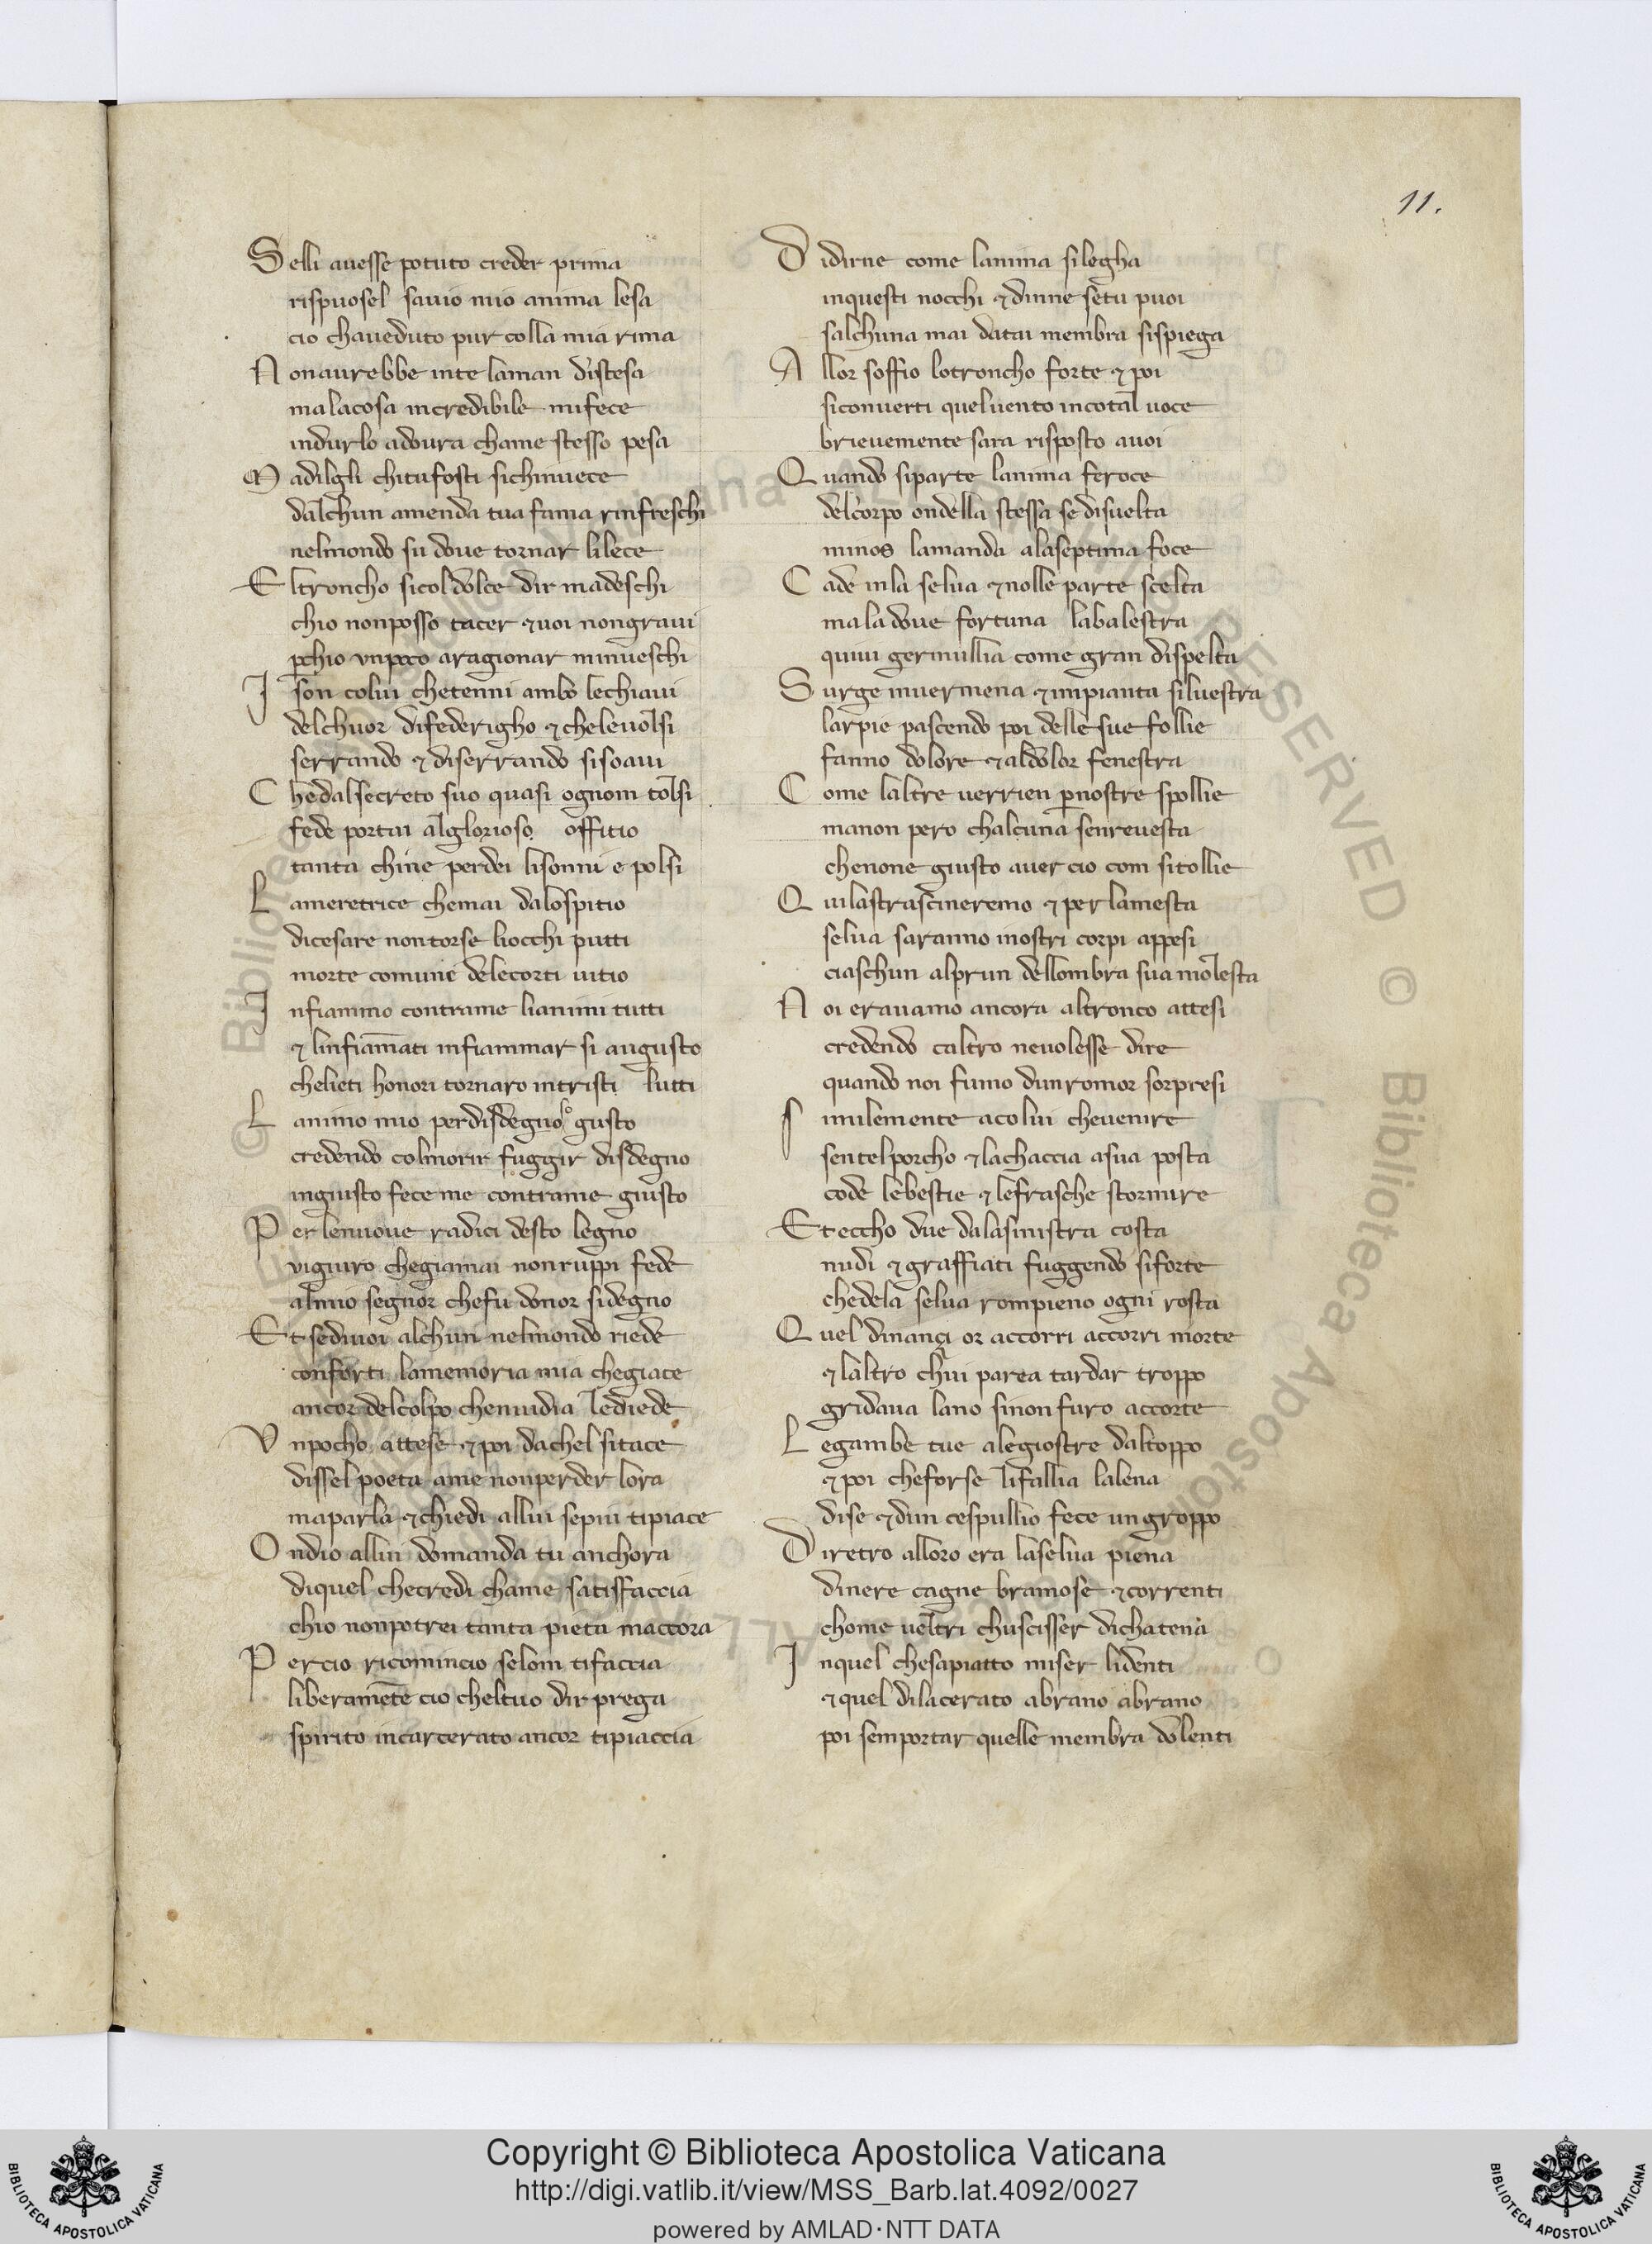 11.
Selli auesse potuto creder prima
rispuosel sauio mio anima lesa
cio chaueduto pur colla mia rima
Nonaurebbe inte laman distesa
malacosa incredibile mifece
indurlo adoura chame stesso pesa
Madilgli chitufosti sichinuece
dalchun amenda tua fama rinfreschi
nelmondo su doue tornar lilece
Eltroncho sicol dolce dir madeschi
chio nonposso tacer ⁊uoi nongraui
ꝑchio vnpoco aragionar minueschi
Ison colui chetenni ambo lechiaui
delchuor difederigho ⁊ cheleuolsi
serrando ⁊ diserrando sisoaui
Chedalsecreto suo quasi ognom tolsi
fede portai alglorioso offitio
tanta chine perdei lisonni e polsi
Lameretrice chemai dalospitio
dicesare nontorse liocchi putti
morte comune delecorti uitio
Infiammo contrame lianimi tutti
⁊ linfiam̄ati infiammar si augusto
chelieti honori tornaro intristi lutti
Lanimo mio perdisdegnoso gusto
credendo colmorir fuggir disdegno
ingiusto fece me contrame giusto
Perlenuoue radici desto legno
viguiro chegiamai nonruppi fede
almio segnor chefu donor sidegno
Et sediuoi alchun nelmondo riede
conforti lamemoria mia chegiace
ancor delcolpo chenuidia lediede
Vnpocho attese ⁊ poi dachel sitace
dissel poeta ame nonperder lora
maparla ⁊ chiedi allui sepiu tipiace
Ondio allui domanda tu anchora
diquel checredi chame satisfaccia
chio nonpotrei tanta pieta maccora
Percio ricomincio selom tifaccia
liberamēte cio cheltuo dir prega
spirito incarcerato ancor tipiaccia
Didirne come lanima silegha
inquesti nocchi ⁊ dinne setu puoi
salchuna mai datai membra sispiega
Allor soffio lotroncho forte ⁊ poi
siconuerti queluento incotal uoce
brieuemente sara risposto auoi
Quando siparte lanima feroce
delcorpo ondella stessa sedisuelta
minos lamanda alaseptima foce
Cade inla selua ⁊nolle parte scelta
mala doue fortuna labalestra
quiui germullia come gran dispelta
Surge inuermena ⁊ impianta siluestra
larpie pascendo poi delle sue follie
fanno dolore ⁊ aldolor fenestra
Come laltre uerrien ꝑnostre spollie
manon pero chalcuna senreuesta
chenone giusto auer cio com sitollie
Quilastrascineremo ⁊ per lamesta
selua saranno inostri corpi appesi
ciaschun alprun dellombra sua molesta
Noi erauamo ancora altronco attesi
credendo caltro neuolesse dire
quando noi fumo dunromor sorpresi
Similemente acolui cheuenire
sentelporcho ⁊ lachaccia asua posta
code lebestie ⁊ lefrasche stormire
Et eccho due dalasinistra costa
nudi ⁊ graffiati fuggendo siforte
chedela selua rompieno ogni rosta
Quel dinançi or accorri accorri morte
⁊ laltro chui parea tardar troppo
gridaua lano sinonfuro accorte
Legambe tue alegiostre daltoppo
⁊ poi cheforse lifallia lalena
dise ⁊ dun cespullio fece un groppo
Diretro alloro era laselua piena
dinere cagne bramose ⁊ correnti
chome ueltri chuscisser dichatena
Inquel chesapiatto miser lidenti
⁊ quel dilacerato abrano abrano
poi semportar quelle membra dolenti
Copyright © Biblioteca Apostolica Vaticana
http://digi.vatlib.it/view/MSS_Barb.lat.4092/0027
powered by AMLAD·NTT DATA
BIBLIOTECA APOSTOLICA VATICANA
BIBLIOTECA APOSTOLICA VATICANA